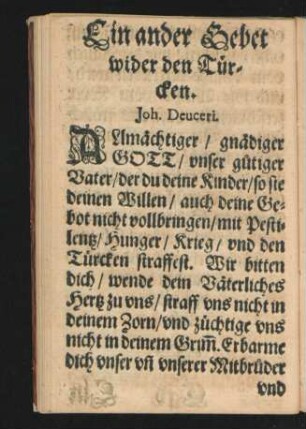 Ein ander Gebet
wider den Tür-
cken.
Joh. Deuceri.
ALlmächtiger / gnädiger
GOTT / vnser gütiger
Vater / der du deine Kinder / so sie
deinen Willen / auch deine Ge-
bot nicht vollbringen / mit Pesti-
lentz / Hunger / Krieg / vnd den
Türcken straffest. Wir bitten
dich / wende dein Väterliches
Hertz zu vns / straff vns nicht in
deinem Zorn / vnd züchtige vns
nicht in deinem Grim̃. Erbarme
dich vnser vñ vnserer Mitbrüder
vnd